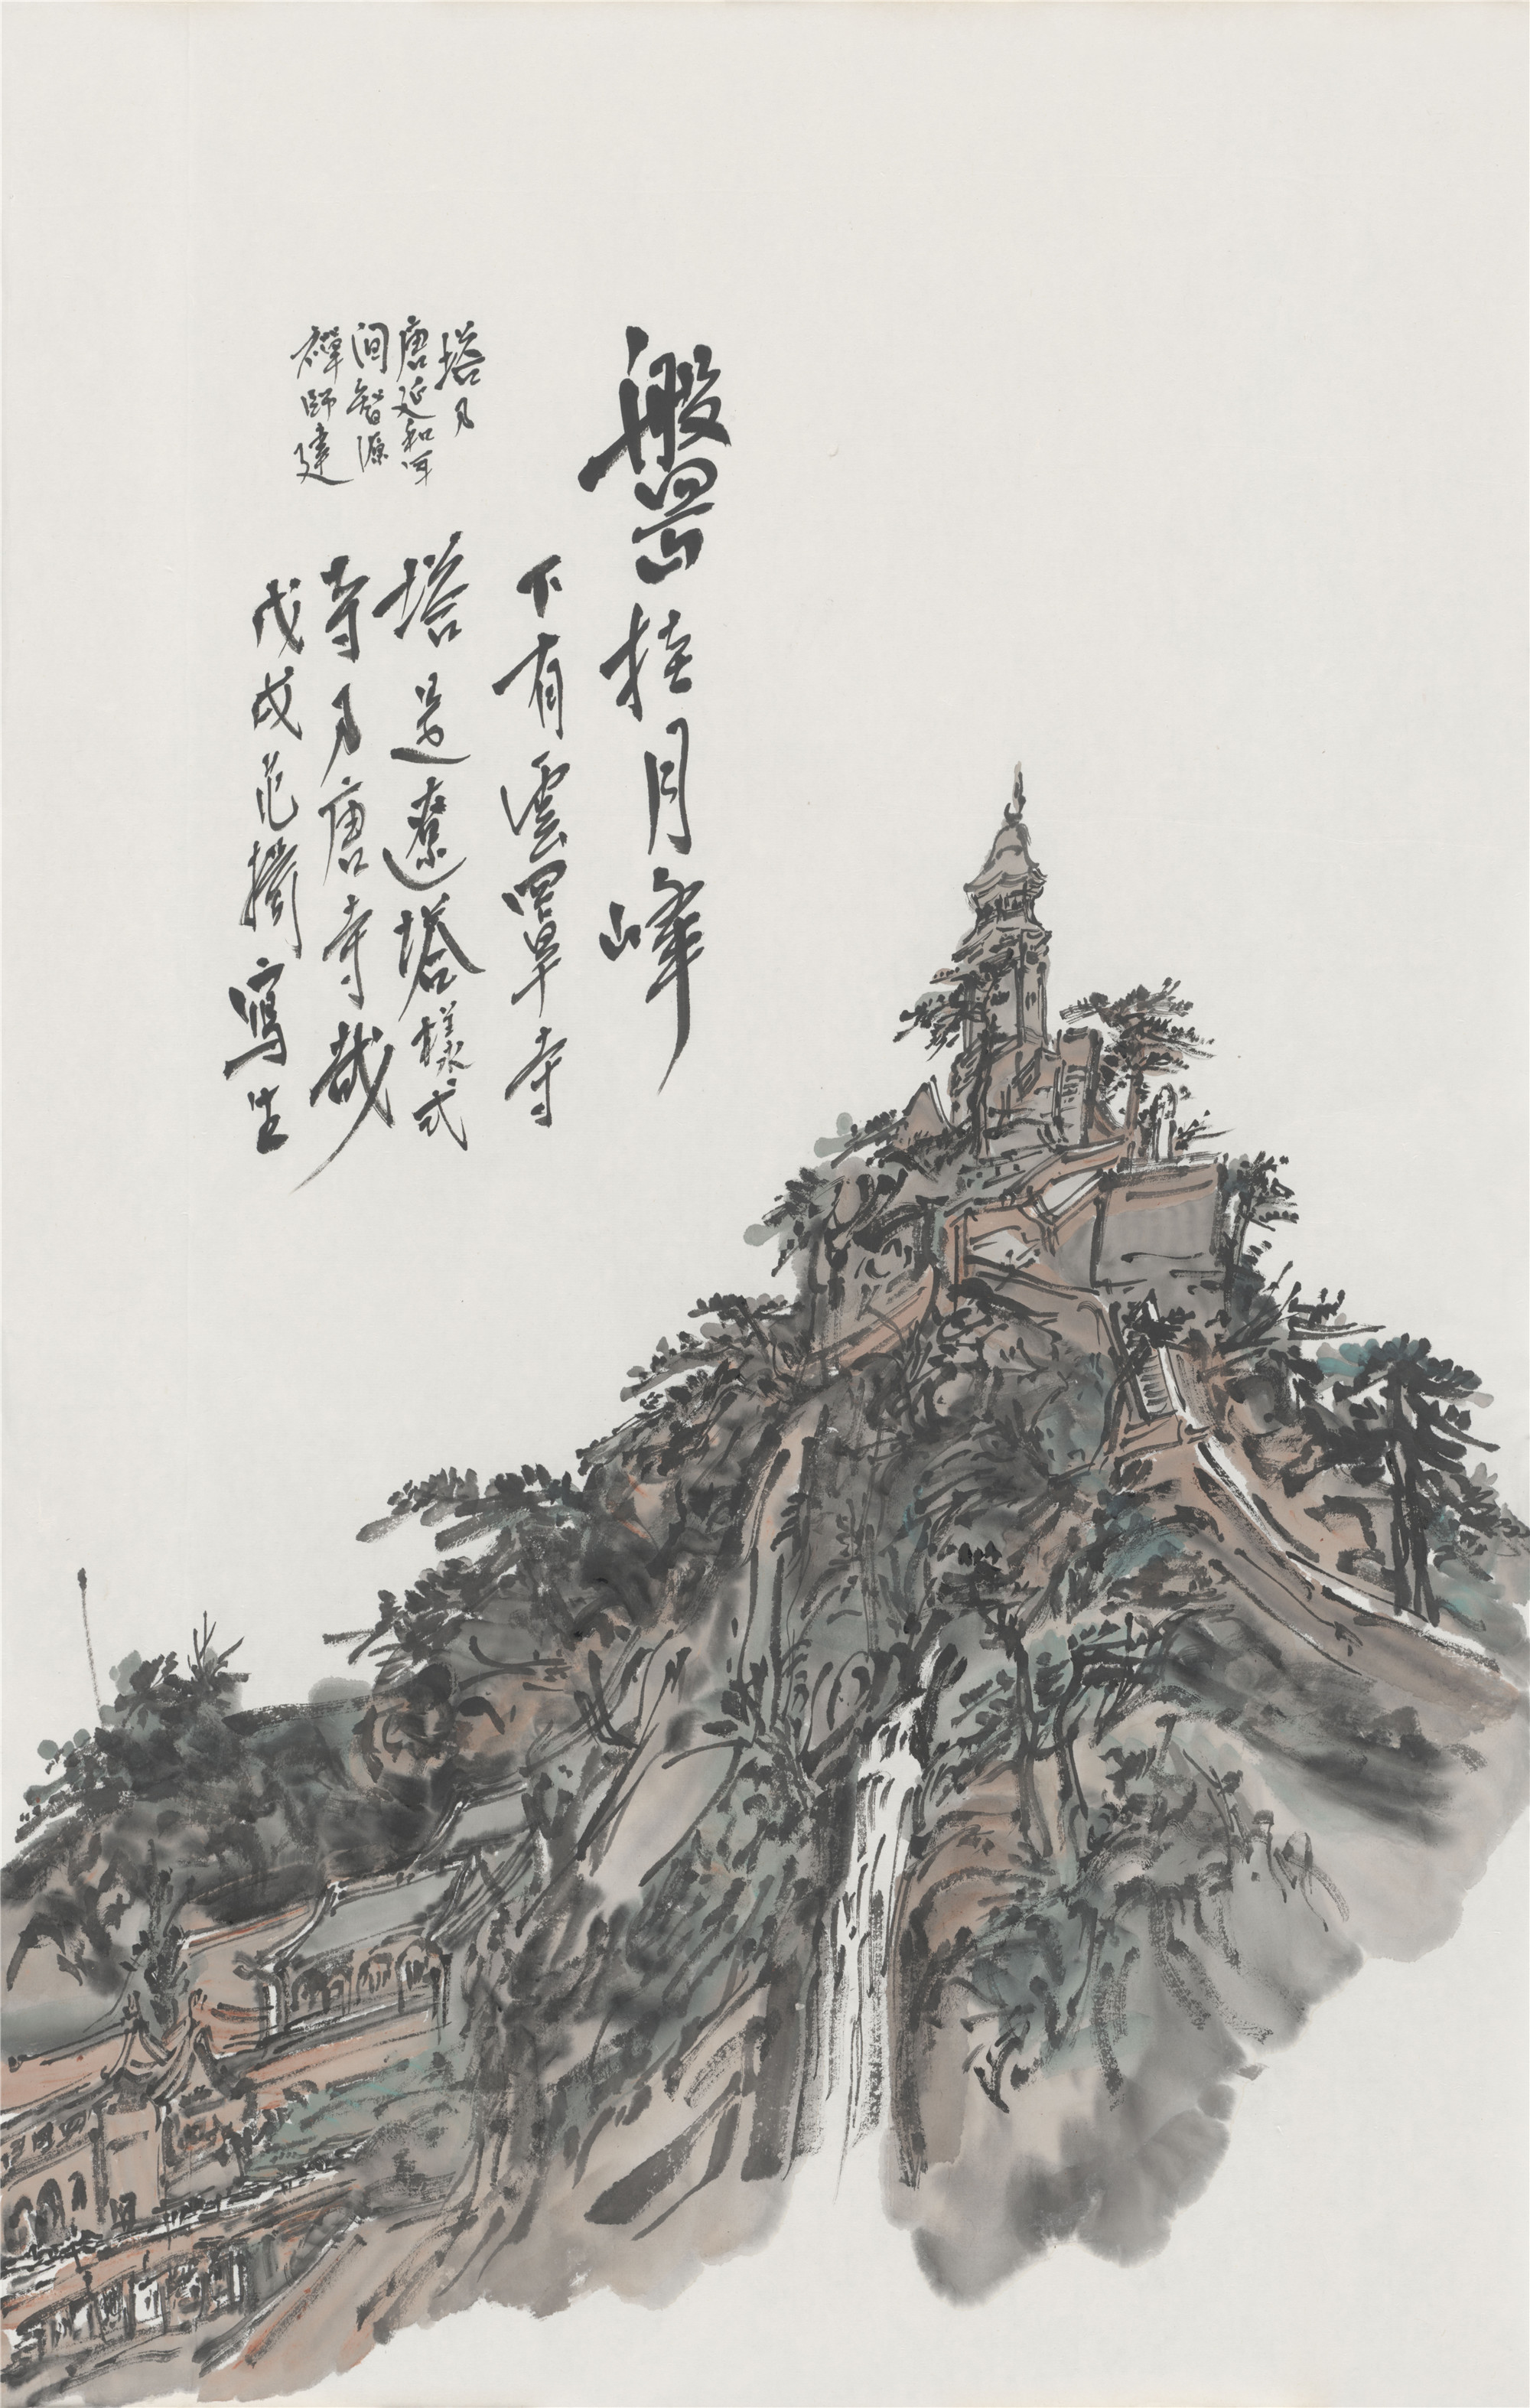 盤山挂月峰
下有雲罩寺
塔是遼塔樣式
寺乃唐寺哉
戊戌范揚寫生
塔乃
唐延和年
间智源
禪師建